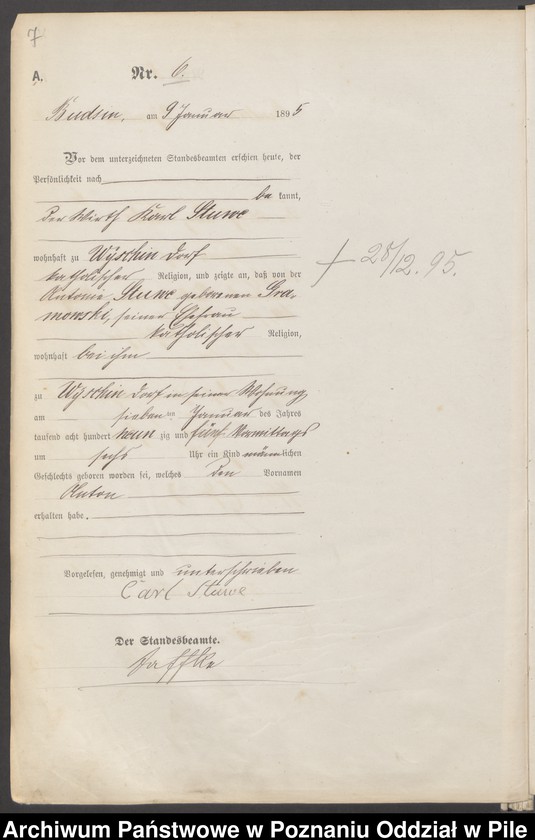 7
A.
Nr. 6.
Budsin, am 9 Januar 1895
Vor dem unterzeichneten Standesbeamten erschien heute, der
Persönlichkeit nach
be kannt,
der Wirth Karl Stuwe
wohnhaft zu Wyschin Dorf
katholischer Religion, und zeigte an, daß von der
Antonie Stuwe geborenen Gra-
mowski, seiner Ehefrau
katholischer Religion,
wohnhaft bei ihm
zu Wyschin Dorf in seiner Wohnung
am sieben ten Januar des Jahres
tausend acht hundert neun zig und fünf Vormittags
um sechs Uhr ein Kind männlichen
Geschlechts geboren worden sei, welches den Vornamen
Anton
erhalten habe.
Vorgelesen, genehmigt und unterschrieben
Carl Stuwe
Der Standesbeamte.
+ 28/12. 95.
Archiwum Państwowe w Poznaniu Oddział w Pile